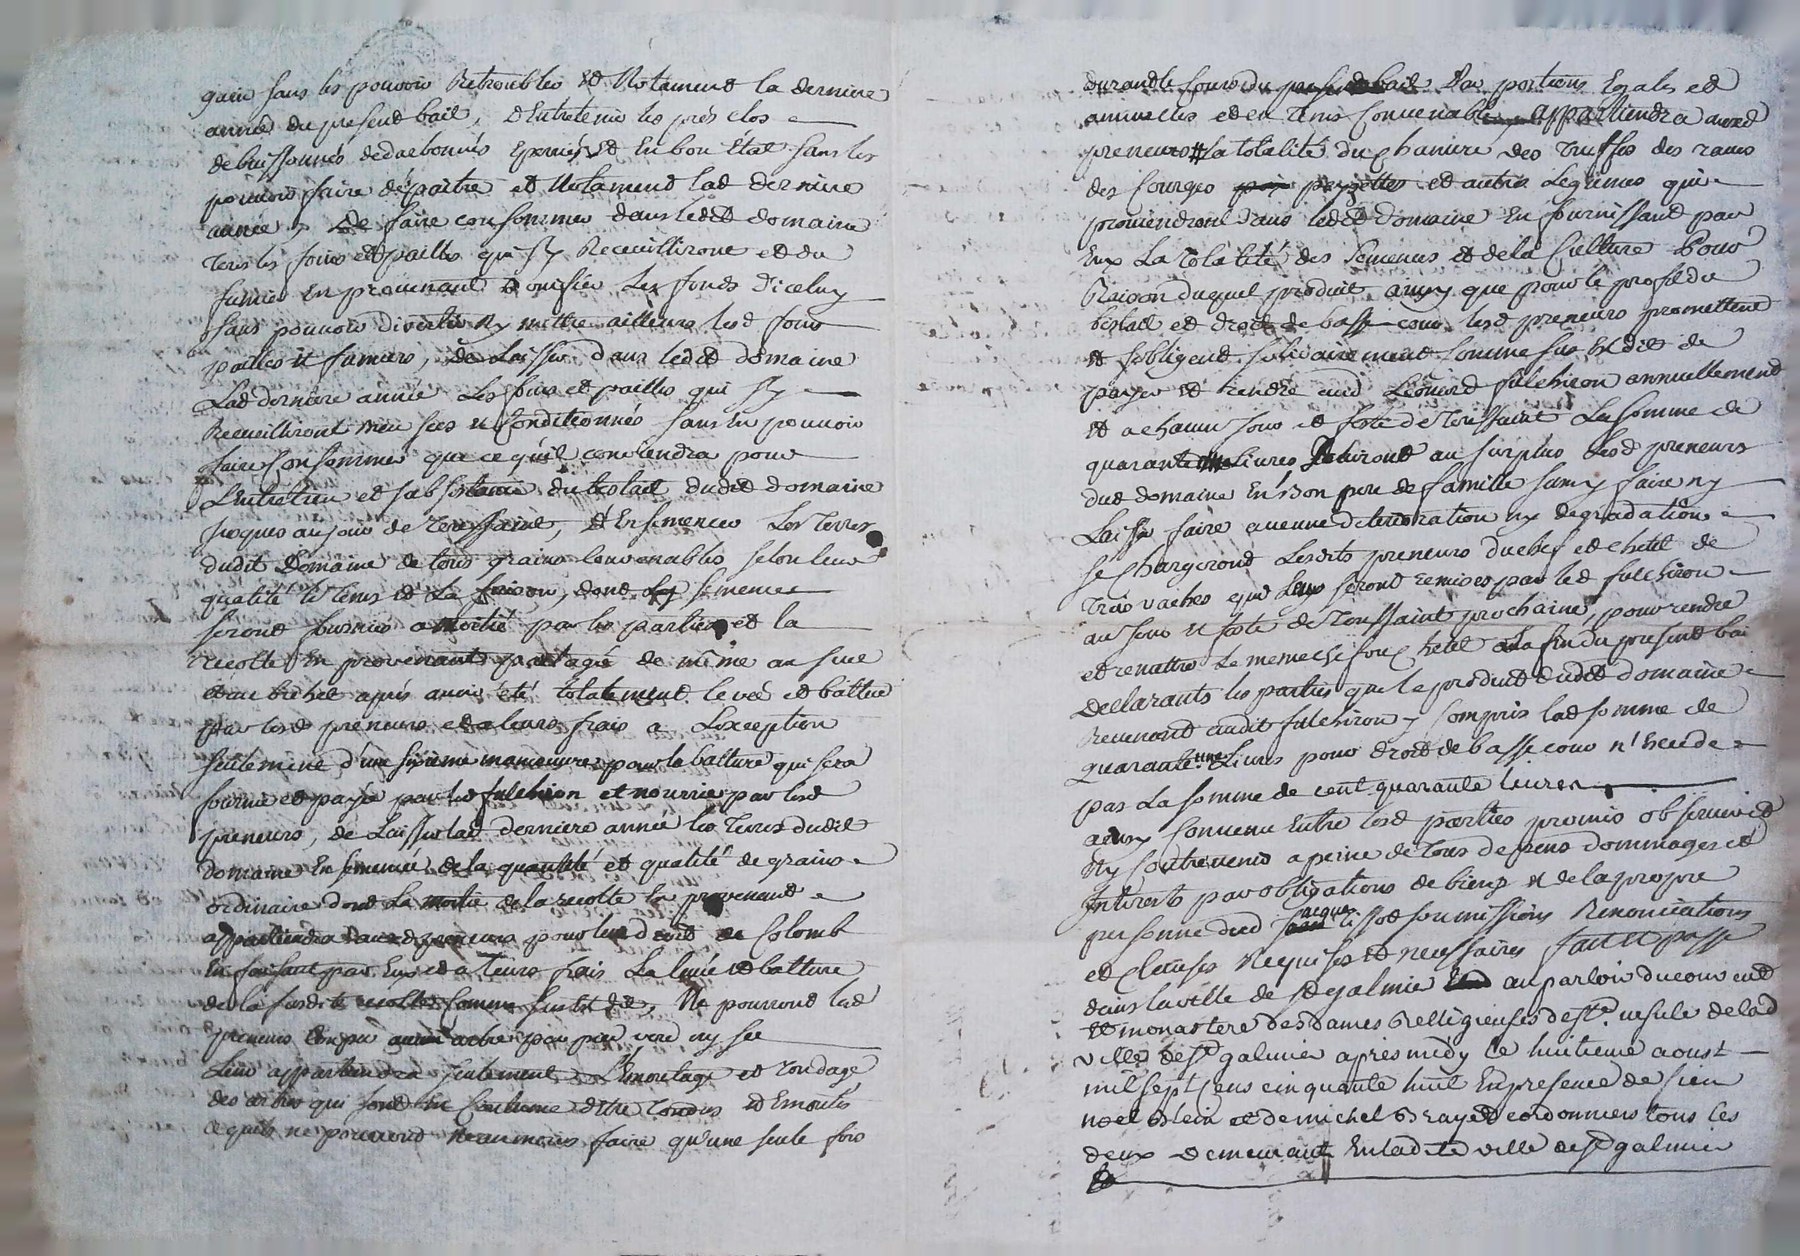 grain sans les pouvoir Retroubler Et Notament la derniere
année du present bail, d'Entretenir les prés clos
de buissonnés Et En bon Etat sans les
pouvoir faire dépaitre et Notament lad derniere
année, de faire consommer dans ledit domaine
tous les foins et pailles qui s'y Recueilliront et du
fumier En provenant les fonds d'iceluy
sans pouvoir divertir ny mettre ailleurs lesd foins
pailles et fumiers, de Laisser dans ledit domaine
Lad derniere année Les foins et pailles qui s'y
Recueilliront secs et Conditionnés sans En pouvoir
faire Consommer que ce qu'il conviendra pour
L'Entretien et subsistance du bestail dudit domaine
jusques au jour de Toussaint, Et Ensemencer Les Terres
dudit Domaine de tous grains Convenables selon leur
qualité le tems et La saison, dont les semences
seront fournies a moitié par les parties et la
recolte En provenant partagée de même au sucl
apres avoir été totalement levée et battue
par lesd preneurs et a leurs frais a L'exception
seulement d'une sixieme manoeuvre pour la batture qui sera
fournie et payée par led fulchiron et nourrie par lesd
preneurs, de Laisser lad derniere année les Terres dudit
domaine Ensemencées de la quantité et qualité de grains
ordinaire dont La moitié de la recolte En provenant
appartiendra auxd preneurs pour leur droit de Colomb
En faisant par Eux et a leurs frais La levée et batture
de la susdite recolte Comme sus Est dit, Ne pourront lesd
preneurs Couper aucun arbre par pied verd ny sec
Leur appartiendra seulement L'Emontage et tondage
des arbres qui sont En Coutume d'Etre tondus et Emontés
ce qu'ils ne pourront neanmoins faire qu'une seule fois
durant le Cours du present bail Par portions Egales et
annuelles et en tems Convenable appartiendra auxd
preneurs la totalité du Chanvre des Truffes des raves
des Courges pezettes et autres Legumes qui
proviendront dans ledit Domaine En fournissant par
Eux La totalité des Semences et de la Culture Pour
Raison duquel produit ainsy que pour le profit du
bestail et droit de basse cour lesd preneurs promettent
et s'obligent solidairement Comme sus Est dit de
payer et rendre aud Leonard fulchiron annuellement
et a chacun jour et feste de Toussaint La somme de
quarante une Livres Jouiront au surplus lesd preneurs
dud domaine En Bon pere de famille sans y faire ny
Laisser faire aucune deterioration ny degradation
se Chargeront Lesdits preneurs du chef et chetel de
trois vaches qui Leur seront remises par led fulchiron
au jour et feste de Toussaint prochaine, pour rendre
et remettre le meme chef ou Chetel a la fin du present bai
Declarants les parties que le produit dudit domaine
Revenant audit fulchiron y Compris lad somme de
quarante une Livres pour droit de basse cour n'Excede
pas La somme de cent quarante livres
ainsy Convenu Entre lesd parties promis observer et
Ny Contrevenir a peine de tous depens dommages et
Interets par obligations de biens et de la propre
personne dud Jacque tissot soumissions Renonciations
et Clauses Requises et necessaires fait et passé
dans la ville de st galmier au parloir du couvent
et monastere des dames Relligieuses de ste. ursule de lad
ville de st galmier apres midy le huitieme aoust
mil sept Cens cinquante huit En presence de sieur
noel et de michel cordonniers tous les
deux demeurant En ladite ville de st galmier